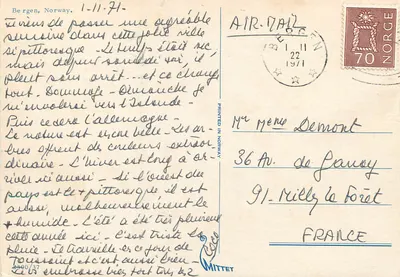 Bergen, Norway.
1-11-71.
Je viens de passer une agréable
semaine dans cette jolie ville
si pittoresque. Le temps était sec
mais depuis samedi soir, il
pleut sans arrêt... et ça change
tout. Dommage. Dimanche je
m'envolerai vers l'Islande.
Puis ce sera l'Allemagne.
La nature est encore belle. Les ar-
bres offrent des couleurs extraor-
dinaire. L'hiver est long à ar-
river ici aussi. Si l'ouest du
pays est le + pittoresque il est
aussi, malheureusement le
+ humide. L'été a été très pluvieux
cette année ici. C'est triste la
pluie. Je travaille en ce jour de
Toussaint et c'est aussi bien.
Je vs embrasse bien fort ts les 2
Coco
AIR-MAIL
BERGEN
1 11
22
1971
NORGE
70
PRINTED IN NORWAY
Mr Mme Demont
36 Av. de
91-Milly la Forêt
FRANCE
MITTET